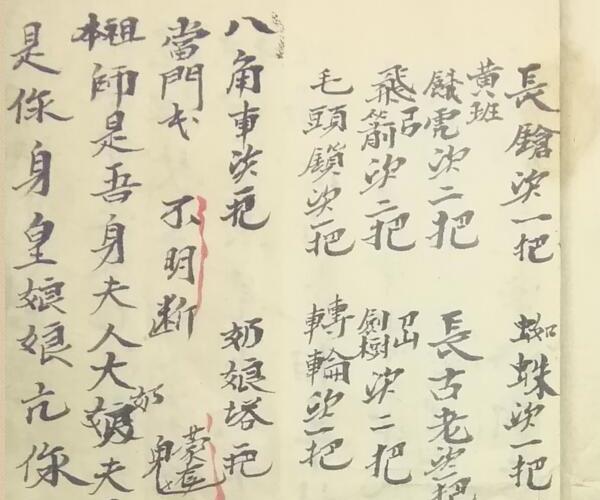 長鎗次一把 蜘蛛次一把
黃班餓虎次二把 長古老次一把
飛弓箭次二把 刀山劍樹次二把
毛頭鎖次一把 轉輪次一把
八角車次一把 奶娘塔一把
當門 不明斷
本祖師是吾身夫人大奶夫
是你身皇娘娘亢你